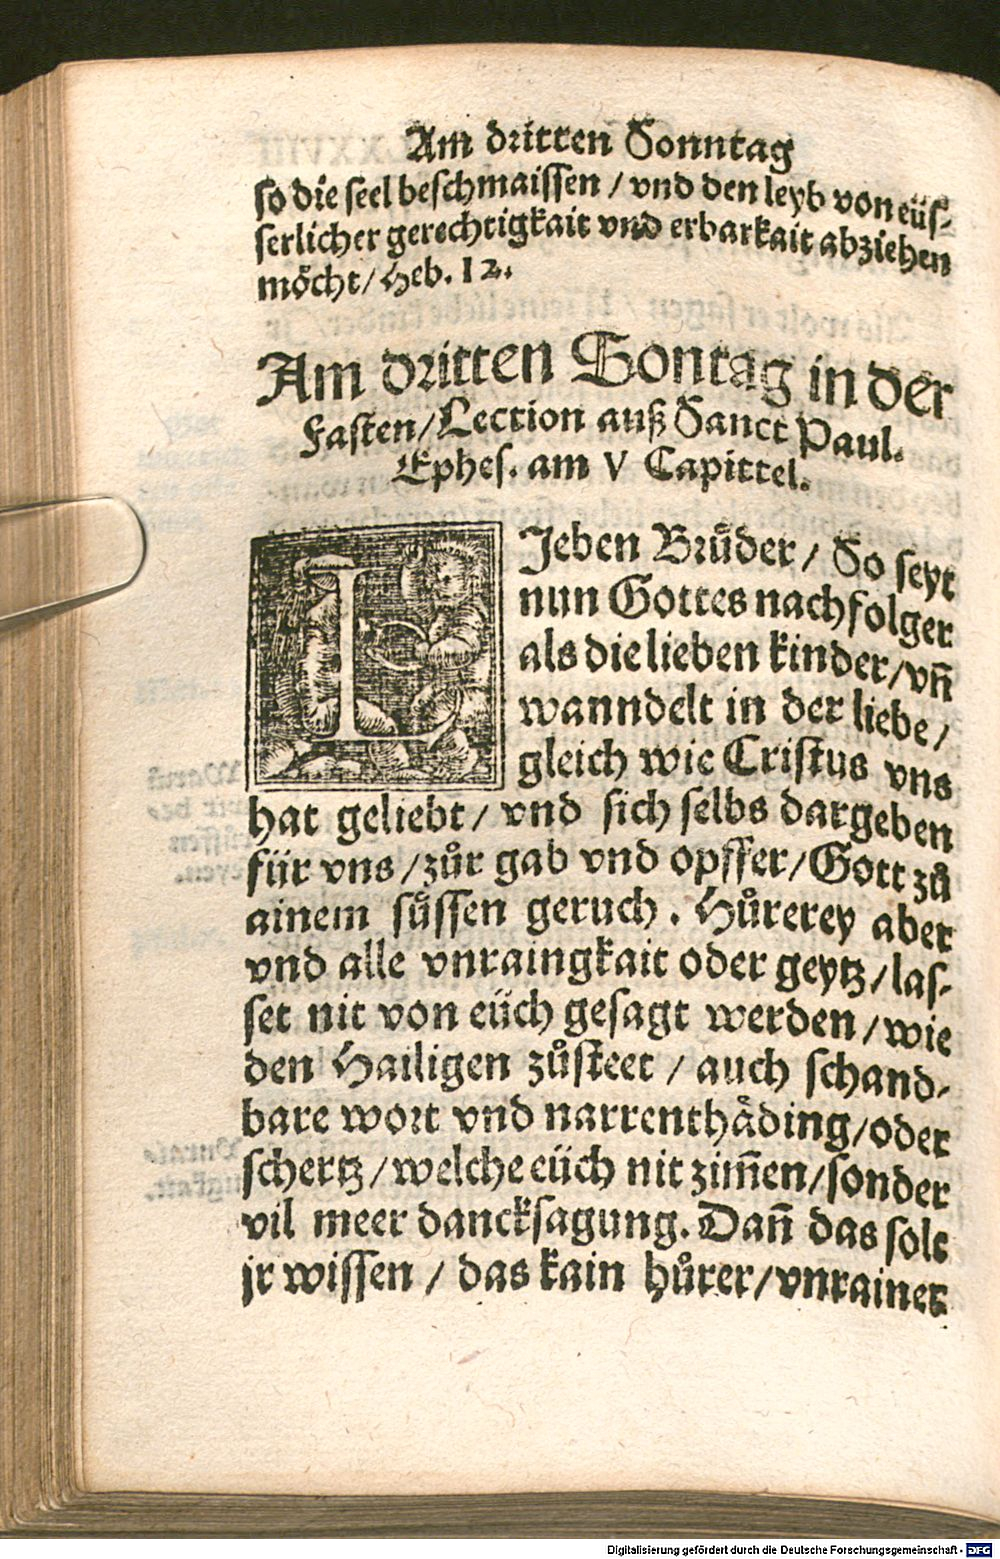 Am dritten Sonntag
so die seel beschmaissen / vnd den leyb von eüs-
serlicher gerechtigkait vnd erbarkait abziehen
möcht / Heb. 12.
Am dritten Sontag in der
Fasten / Lection auß Sanct Paul.
Ephes. am V Capittel.
LIeben Brůder / So seyt
nun Gottes nachfolger
als die lieben kinder / vn̄
wanndelt in der liebe /
gleich wie Cristus vns
hat geliebt / vnd sich selbs dargeben
für vns / zůr gab vnd opffer / Gott zů
ainem sůssen geruch . Hůrerey aber
vnd alle vnraingkait oder geytz / las-
set nit von eüch gesagt werden / wie
den Hailigen zůsteet / auch schand-
bare wort vnd narrenthåding / oder
schertz / welche eüch nit zim̄en / sonder
vil meer dancksagung. Dan̄ das solt
jr wissen / das kain hůrer / vnrainer
Digitalisierung gefördert durch die Deutsche Forschungsgemeinschaft - DFG